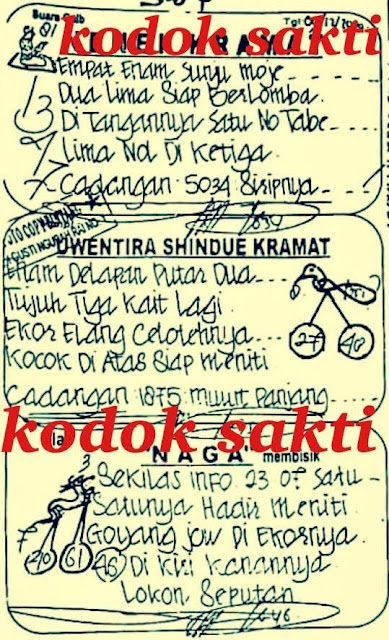 Suara Gaib
81
kodok sakti
KRAMAT
Empat Enam Sunyu Moje
Dua Lima Siap Berlomba.
13
Di Tangannya Satu No Tabe
Lima Nol Di Ketiga
7
Cadangan 5034 Sisipnya
UWENTIRA SHINDUE KRAMAT
Enam Delapan Putar Dua
Tujuh Tiga Kait Lagi
Ekor Elang Celotehnya
27
40
Kocok Di Atas Siap Meniti
Cadangan 1875 Mulut Panjang
kodok sakti
NAGA membisik
3
Sekilas Info 23 07 Satu
Satunya Hadir Meniti
7
Goyang Jow Di Ekornya
20 61 45
Di Kiri Kanannya
Lokon Seputan